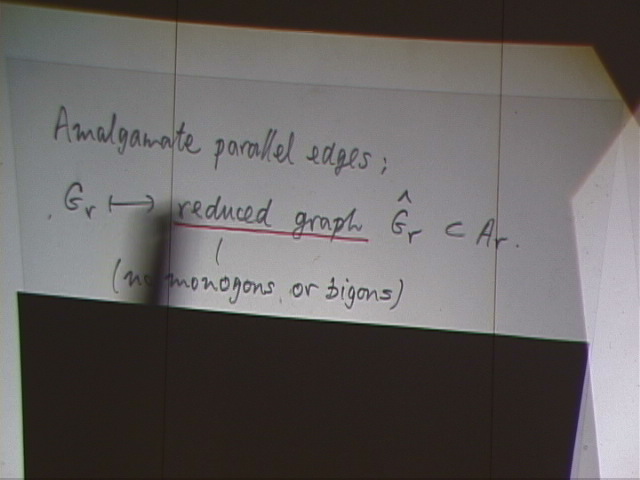 Amalgamate parallel edges;
Gr ↦ reduced graph Ĝr ⊂ Ar.
(no monogons or bigons)